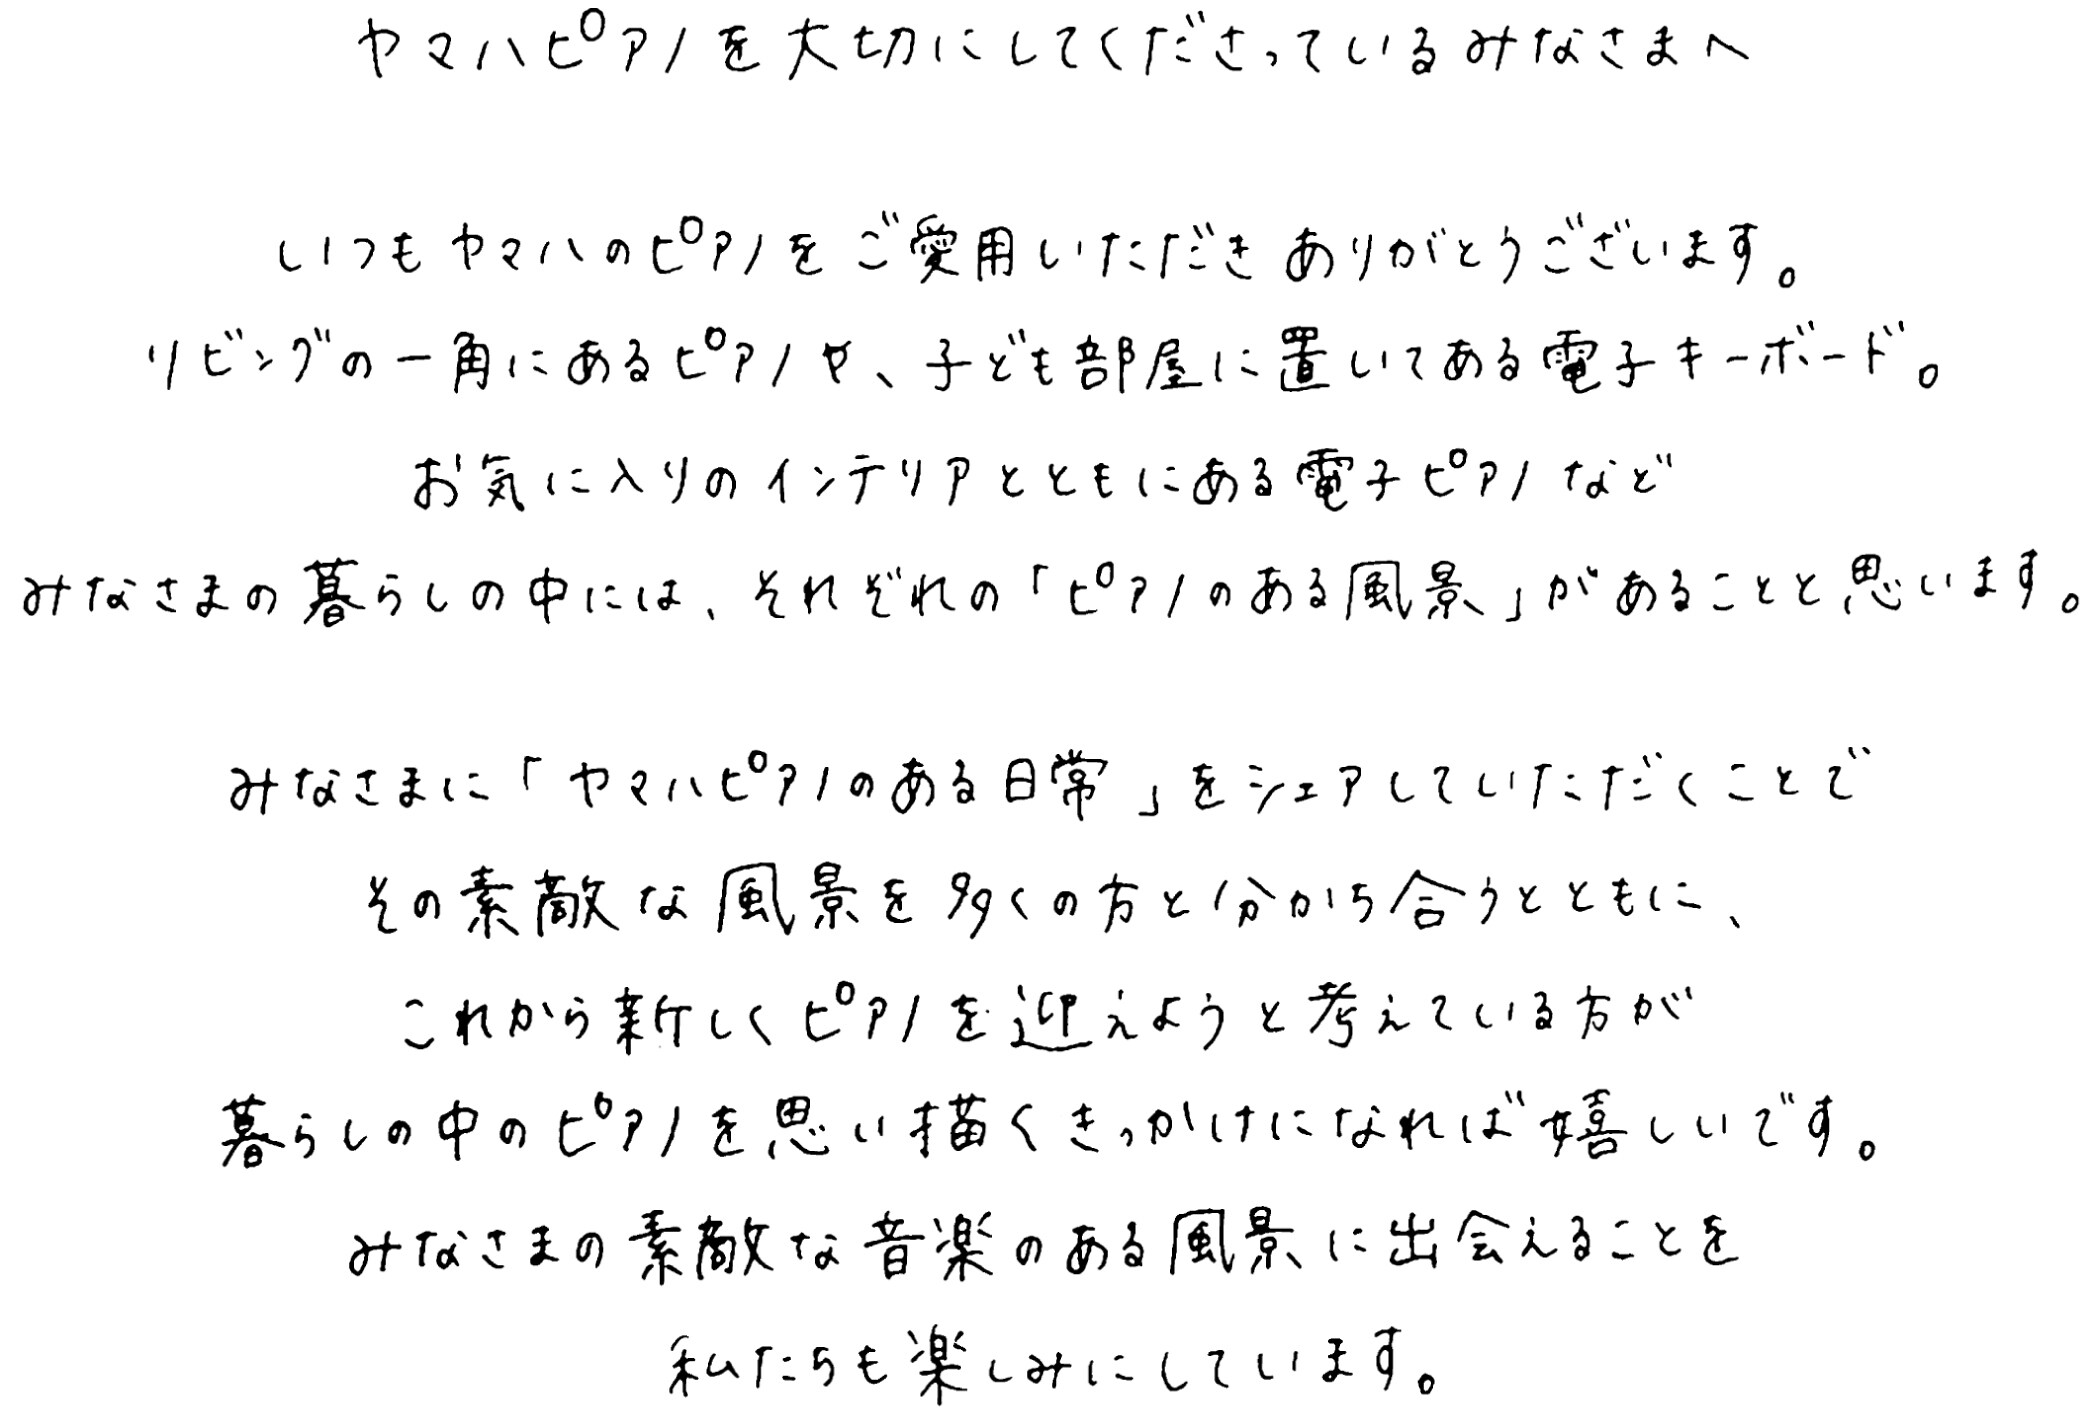 ヤマハピアノを大切にしてくださっているみなさまへ
いつもヤマハのピアノをご愛用いただきありがとうございます。
リビングの一角にあるピアノや、子ども部屋に置いてある電子キーボード。
お気に入りのインテリアとともにある電子ピアノなど
みなさまの暮らしの中には、それぞれの「ピアノのある風景」があることと思います。
みなさまに「ヤマハピアノのある日常」をシェアしていただくことで
その素敵な風景を多くの方と分かち合うとともに、
これから新しくピアノを迎えようと考えている方が
暮らしの中のピアノを思い描くきっかけになれば嬉しいです。
みなさまの素敵な音楽のある風景に出会えることを
私たちも楽しみにしています。